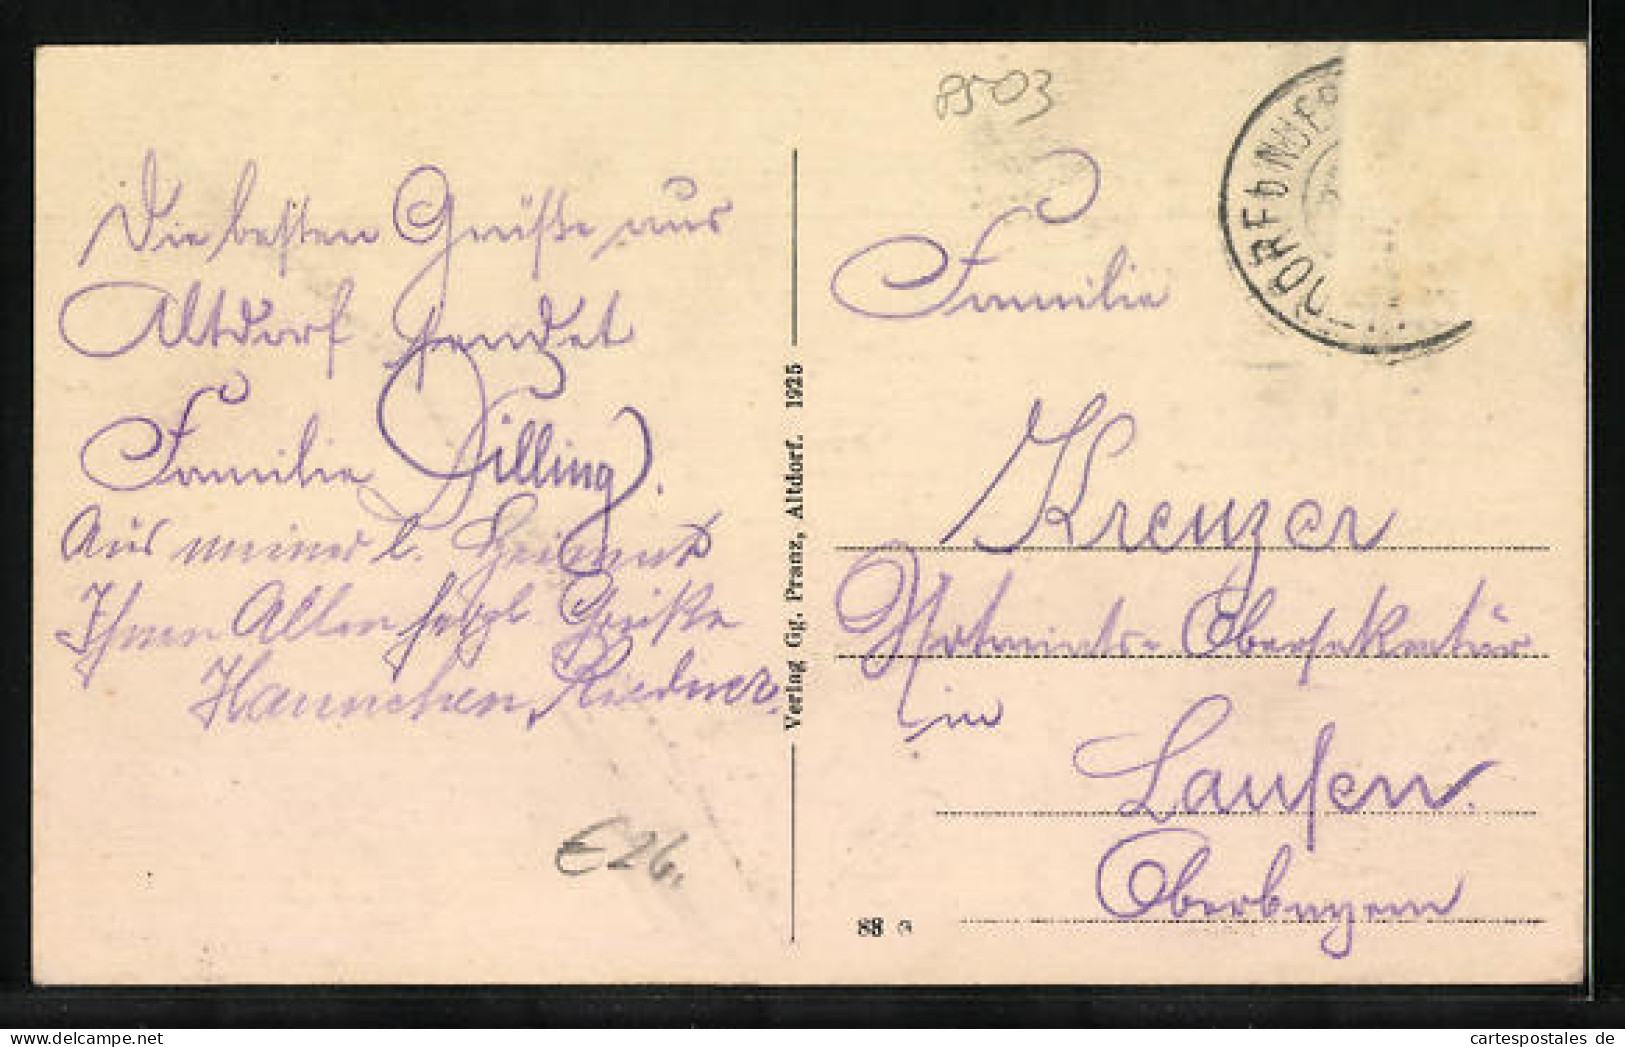 8503
Die besten Grüße aus
Altdorf sendet
Familie Dilling.
Aus meiner l. Heimat
Ihnen Allen herzl. Grüße
Hannchen Riedner.
€ 26,
Verlag Gg. Pranz, Altdorf. 1925
88
DORF b. NÜR
Familie
Kreuzer
Notariats-Obersekretär
in
Laufen.
Oberbayern
cartespostales de